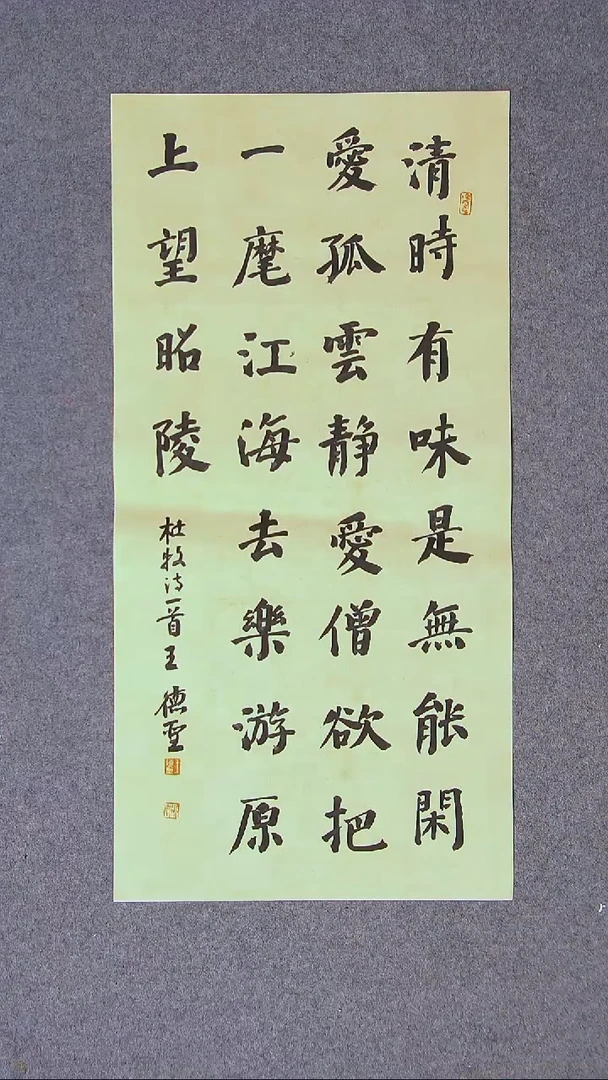 清時有味是無能閑
愛孤雲靜愛僧欲把
一麾江海去樂游原
上望昭陵
杜牧诗一首王德聖